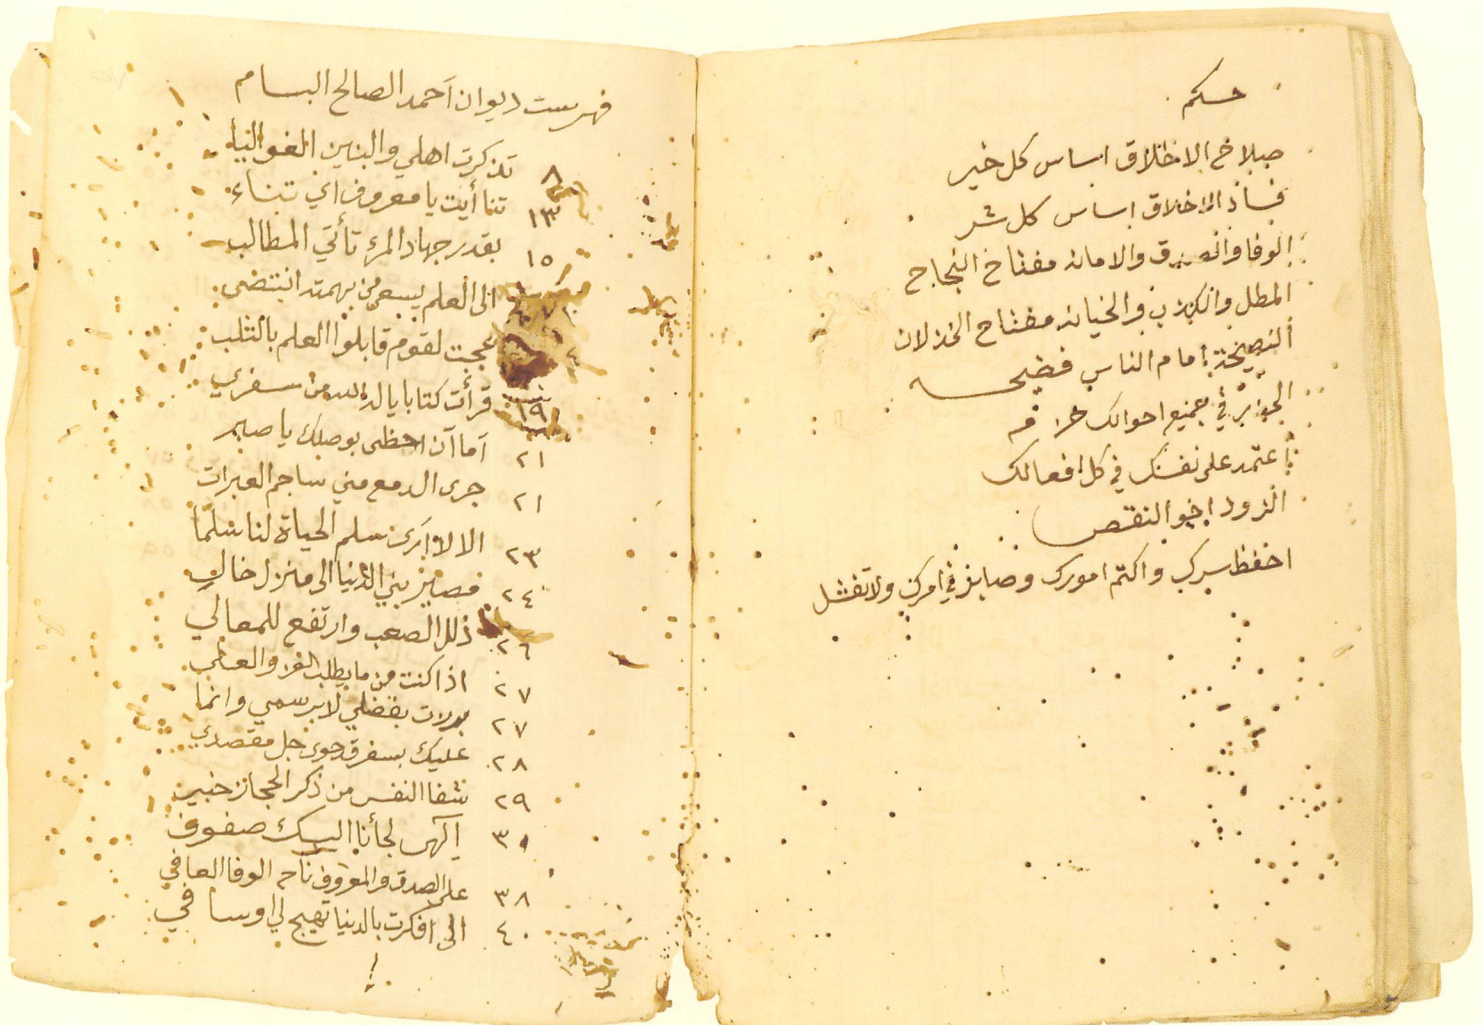 حكم
صلاح الاخلاق اساس كل خير
فساد الاخلاق اساس كل شر
الوفا والصدق والامانه مفتاح النجاح
المطل والكذب والخيانه مفتاح الخذلان
النصيحة امام الناس فضيحه
في جميع احوالك
اعتمد على نفسك في كل افعالك
الزود اخو النقص
احفظ سرك واكتم امورك وصابر في امرك ولا تفشل
فهرست ديوان آحمد الصالح البسام
٨ تذكرت اهلي والبنين الغواليا
١٣ تنأيت يا معروف اي تناء
١٥ بقدر جهاد المرء تأتي المطالب
الى العلم يسعى من بهمته
عجبت لقوم قابلوا العلم بالثلب
١٩ قرأت كتابا يا من سفري
٢١ آما آن احظى بوصلك يا
٢١ جرى الدمع مني ساجم العبرات
٢٣ الا لا آرى سلم الحياة لنا سلما
٢٤ فصير بني الدنيا الى منزل خال
٢٦ ذلل الصعب وارتفع للمعالي
٢٧ اذا كنت من ما يطلب العز والعلى
٢٧ بدلات بفضلي لا برسمي وانما
٢٨ عليك بسفر قد حوى جل مقصدي
٢٩ شفا النفس من ذكر الحجاز
٣٠ إلهي لجأنا اليك صفوف
٣٨ على الصدق والمعروف ناح الوفا العافي
٤٠ الى افكرت بالدنيا تهيج لي اوسافي